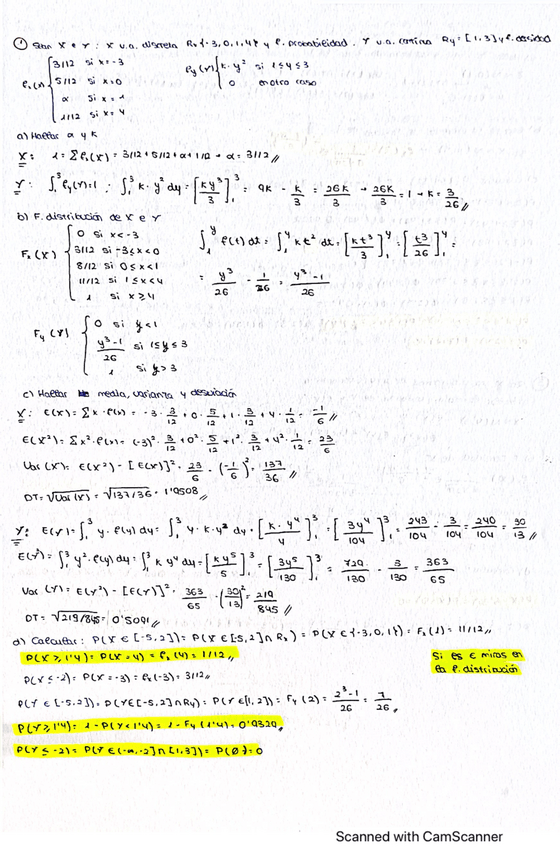 ① Sean X e Y : X v.a. discreta Rx{-3,0,1,4} y f. probabilidad. Y v.a. continua Ry=[1,3] y f. densidad
Px(x) { 3/12 si x=-3
5/12 si x=0
α si x=1
1/12 si x=4
Py(Y) { k·y² si 1≤y≤3
0 en otro caso
a) Hallar α y k
X: 1=ΣPx(x)= 3/12+5/12+α+1/12 → α=3/12//
Y: ∫₁³ Py(Y)=1 : ∫₁³ k·y² dy = [ky³/3]₁³ = 9k - k/3 = 26k/3 → 26k/3 = 1 → k= 3/26//
b) F. distribución de X e Y
Fx(X) { 0 si x<-3
3/12 si -3≤x<0
8/12 si 0≤x<1
11/12 si 1≤x<4
1 si x≥4
∫₁ʸ P(t) dt = ∫₁ʸ kt² dt = [kt³/3]₁ʸ = [t³/26]₁ʸ =
= y³/26 - 1/26 = y³-1/26
Fy(Y) { 0 si y<1
y³-1/26 si 1≤y≤3
1 si y>3
c) Hallar media, varianza y desviación
X: E(X)= Σx·P(x)= -3·3/12 + 0·5/12 + 1·3/12 + 4·1/12 = -1/6//
E(X²)= Σx²·P(x)= (-3)²·3/12 + 0²·5/12 + 1²·3/12 + 4²·1/12 = 23/6
Var(X)= E(X²) - [E(X)]² = 23/6 - (-1/6)² = 137/36
DT= √Var(X) = √137/36 = 1'9508//
Y: E(Y)= ∫₁³ y·P(y) dy = ∫₁³ y·k·y² dy = [k·y⁴/4]₁³ = [3y⁴/104]₁³ = 243/104 - 3/104 = 240/104 = 30/13
E(Y²)= ∫₁³ y²·P(y) dy = ∫₁³ k y⁴ dy = [ky⁵/5]₁³ = [3y⁵/130]₁³ = 729/130 - 3/130 = 363/65
Var(Y)= E(Y²) - [E(Y)]² = 363/65 - (30/13)² = 219/845//
DT= √219/845 = 0'5091//
d) Calcular: P(X∈[-5,2])= P(X∈[-5,2]∩Rx)= P(X∈{-3,0,1})= Fx(1)= 11/12//
P(X≥1'4)= P(X=4)= Px(4)= 1/12//
Si es ∈ miras en
la f. distribución
P(X≤-2)= P(X=-3)= Px(-3)= 3/12//
P(Y∈[-5,2])= P(Y∈[-5,2]∩Ry)= P(Y∈[1,2])= Fy(2)= 2³-1/26 = 7/26//
P(Y≥1'4)= 1-P(Y<1'4)= 1-Fy(1'4)= 0'9329//
P(Y≤-2)= P(Y∈(-∞,-2]∩[1,3])= P(∅)=0
Scanned with CamScanner